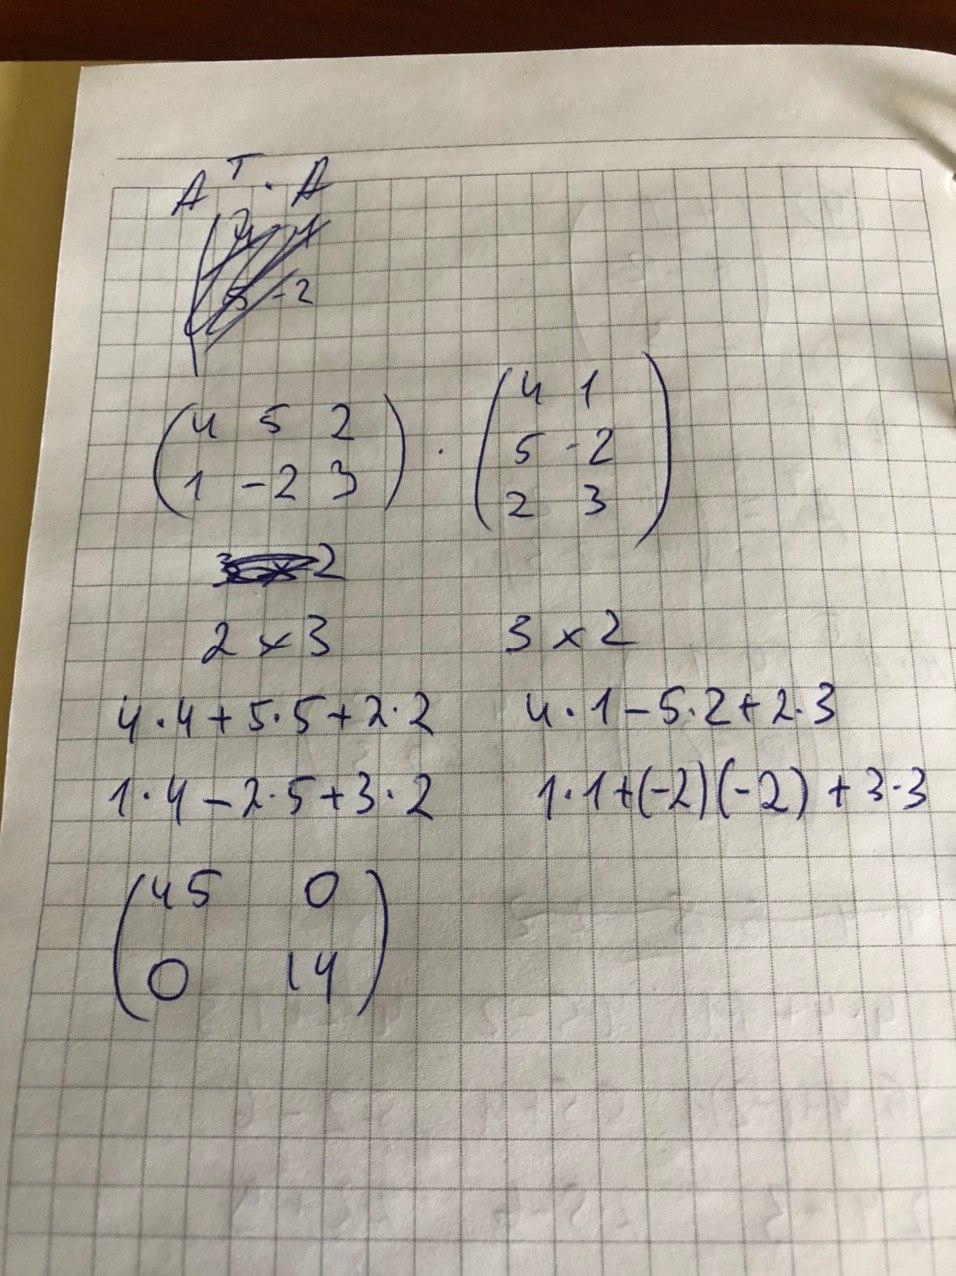 Aᵀ · A
-2
(4 5 2) · (4 1)
(1 -2 3) (5 -2)
(2 3)
2
2 × 3 3 × 2
4·4+5·5+2·2 4·1-5·2+2·3
1·4-2·5+3·2 1·1+(-2)(-2)+3·3
(45 0)
(0 14)